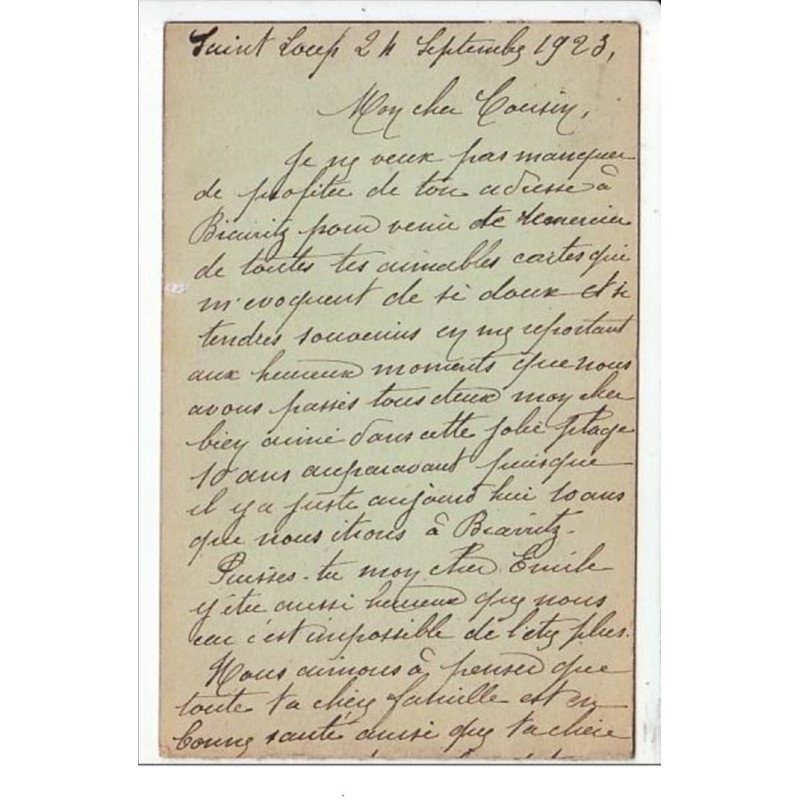 Saint Loup 24 Septembre 1923,
Mon cher Cousin,
Je ne veux pas manquer
de profiter de ton adresse à
Biarritz pour venir te remercier
de toutes tes aimables cartes qui
m'evoquent de si doux et si
tendres souvenirs en me reportant
aux heureux moments que nous
avons passés tous deux mon cher
bien aimé dans cette jolie plage
10 ans auparavant puisque
il y a juste aujourd'hui 10 ans
que nous étions à Biarritz.
Puisses-tu mon cher Emile
y être aussi heureux que nous
car c'est impossible de l'etre plus.
Nous aimons à penser que
toute ta chère famille est en
bonne santé ainsi que ta chère